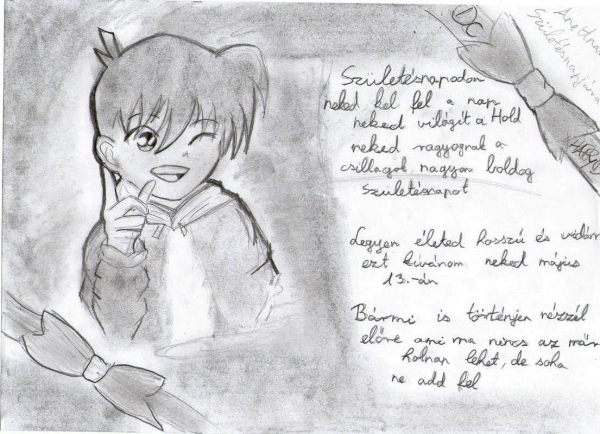 DC
Anettnak
Születésnapjára
Születésnapodon
neked kel fel a nap
neked világít a Hold
neked ragyognak a
csillagok nagyon boldog
születésnapot
Legyen életed hosszú és vidám
ezt kívánom neked május
13.-án
Bármi is történjen nézzél
előre ami ma nincs az már
holnap lehet, de soha
ne add fel